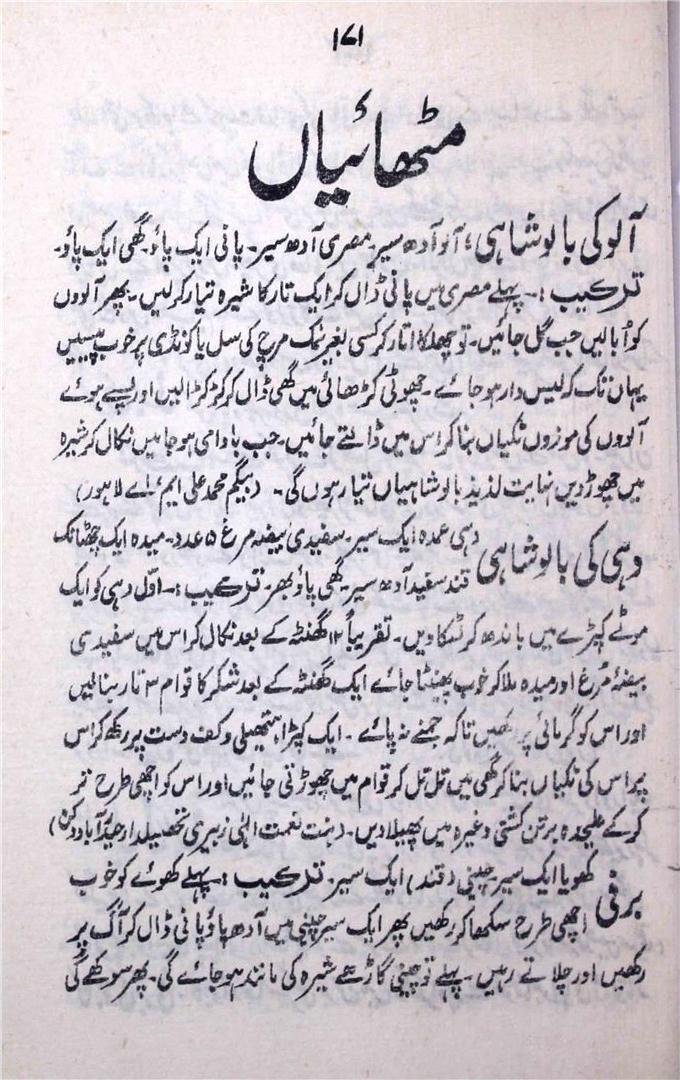 ۱۷۱
مٹھائیاں
آلو کی بالوشاہی؛ آلو آدھ سیر۔ مصری آدھ سیر۔ پانی ایک پاؤ۔ گھی ایک پاؤ۔
ترکیب :۔ پہلے مصری میں پانی ڈال کر ایک تار کا شیرہ تیار کرلیں۔ پھر آلوؤں
کو اُبالیں جب گل جائیں۔ تو چھلکا اتار کر کسی بغیر نمک مرچ کی سل یا کونڈی پر خوب پیسیں
یہاں تک کہ لیس دار ہو جائے۔ چھوٹی کڑھائی میں گھی ڈال کر کڑکڑا لیں اور پسے ہوئے
آلوؤں کی موزوں ٹکیاں بنا کر اس میں ڈالتے جائیں۔ جب بادامی ہو جائیں نکال کر شیرہ
میں چھوڑ دیں نہایت لذیذ بالوشاہیاں تیار ہوں گی۔ (بیگم محمد علی ایم اے لاہور)
دہی کی بالوشاہی دہی عمدہ ایک سیر۔ سفیدی بیضہ مرغ ۵ عدد۔ میدہ ایک چھٹانک
قند سفید آدھ سیر۔ گھی پاؤ بھر۔ ترکیب :۔ اوّل دہی کو ایک
موٹے کپڑے میں باندھ کر لٹکا دیں۔ تقریباً ۱۲ گھنٹہ کے بعد نکال کر اس میں سفیدی
بیضۂ مُرغ اور میدہ ملا کر خوب پھینٹا جائے ایک گھنٹہ کے بعد شکر کا قوام ۳ تار بنا لیں
اور اس کو گرمائی پر رکھیں تاکہ جمنے نہ پائے۔ ایک کپڑا ہتھیلی و کف دست پر رکھ کر اس
پر اس کی ٹکیاں بنا کر گھی میں تل تل کر قوام میں چھوڑتی جائیں اور اس کو اچھی طرح تر
کر کے علیحدہ برتن کشتی وغیرہ میں پھیلا دیں۔ (بنت نعمت الٰہی زبیری تحصیلدار حیدرآباد دکن)
برفی کھویا ایک سیر۔ چینی (قند) ایک سیر۔ ترکیب :۔ پہلے کھوئے کو خوب
اچھی طرح سکھا کر رکھیں پھر ایک سیر چینی میں آدھ پاؤ پانی ڈال کر آگ پر
رکھیں اور چلاتے رہیں۔ پہلے تو چینی گاڑھے شیرہ کی مانند ہو جائے گی۔ پھر سوکھے گی